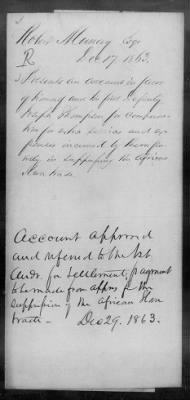 Robt Murray Esq
R Dec 17, 1863.
Presents an account in favor
of himself and his first Deputy
Joseph Thompson for compensa-
tion for extra services and ex-
penses incurred by them for
in suppressing the African
Slave trade.
Account approved
and referred to the 1st
Audr. for settlement, payment
to be made from appn for the
suppression of the African Slave
trade — Dec 29. 1863.